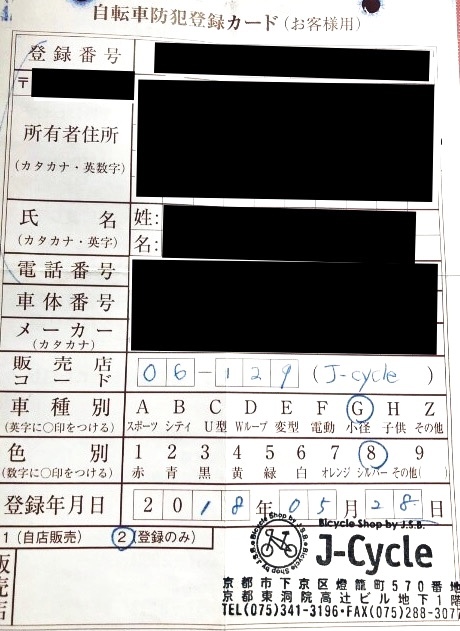 自転車防犯登録カード(お客様用)
登録番号
〒
所有者住所
(カタカナ・英数字)
氏 名
(カタカナ・英字)
姓:
名:
電話番号
車体番号
メーカー
(カタカナ)
販売店コード 06-129 (J-cycle )
車種別 A B C D E F G H Z
(英字に○印をつける) スポーツ シティ U型 Wループ 変型 電動 小径 子供 その他
色別 1 2 3 4 5 6 7 8 9
(数字に○印をつける) 赤 青 黒 黄 緑 白 オレンジ シルバー その他( )
登録年月日 2018年05月28日
1 (自店販売) 2 (登録のみ)
販売店
Bicycle Shop by J.S.B.
Bicycle Shop by J.S.B.
J-Cycle
京都市下京区燈籠町570番地
京都東洞院高辻ビル地下1階
TEL(075)341-3196・FAX(075)288-3077